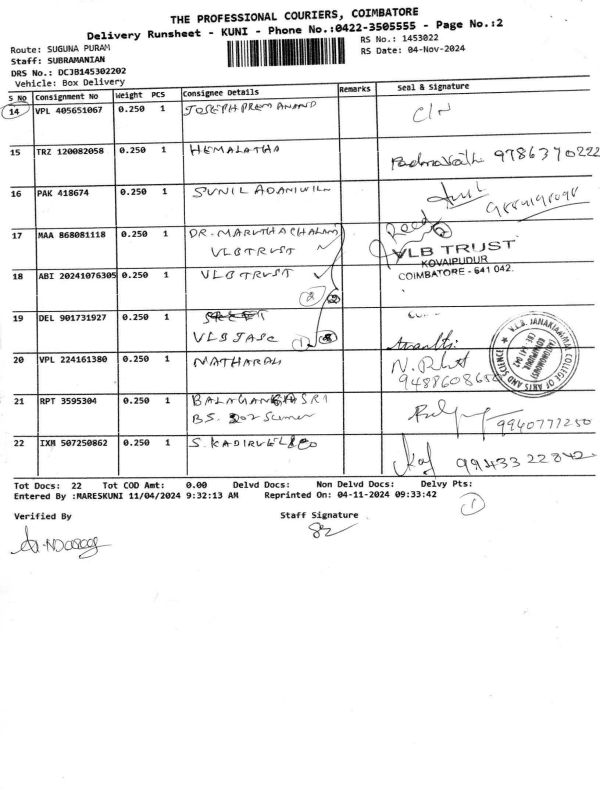 THE PROFESSIONAL COURIERS, COIMBATORE
Delivery Runsheet - KUNI - Phone No.:0422-3505555 - Page No.:2
Route: SUGUNA PURAM
RS No.: 1453022
Staff: SUBRAMANIAN
RS Date: 04-Nov-2024
DRS No.: DCJB145302202
Vehicle: Box Delivery
S No Consignment No Weight PCS Consignee Details Remarks Seal & Signature
14 VPL 405651067 0.250 1 JOSEPH PREM ANAND
15 TRZ 120082058 0.250 1 HEMALATHA 9786370222
16 PAK 418674 0.250 1 SUNIL
17 MAA 868081118 0.250 1 DR. MARUTHACHALAM Recd
VLB TRUST VLB TRUST
KOVAIPUDUR
COIMBATORE - 641 042.
18 ABI 20241076305 0.250 1 VLB TRUST
2
19 DEL 901731927 0.250 1
VLB JASC 1
V.L.B. JANAKIAMMAL COLLEGE OF ARTS AND SCIENCE
20 VPL 224161380 0.250 1
21 RPT 3595304 0.250 1
BS. 9940777250
22 IXM 507250862 0.250 1 S. KADIRVEL & CO 9943322842
Tot Docs: 22 Tot COD Amt: 0.00 Delvd Docs: Non Delvd Docs: Delvy Pts:
1
Entered By :MARESKUNI 11/04/2024 9:32:13 AM Reprinted On: 04-11-2024 09:33:42
Verified By Staff Signature